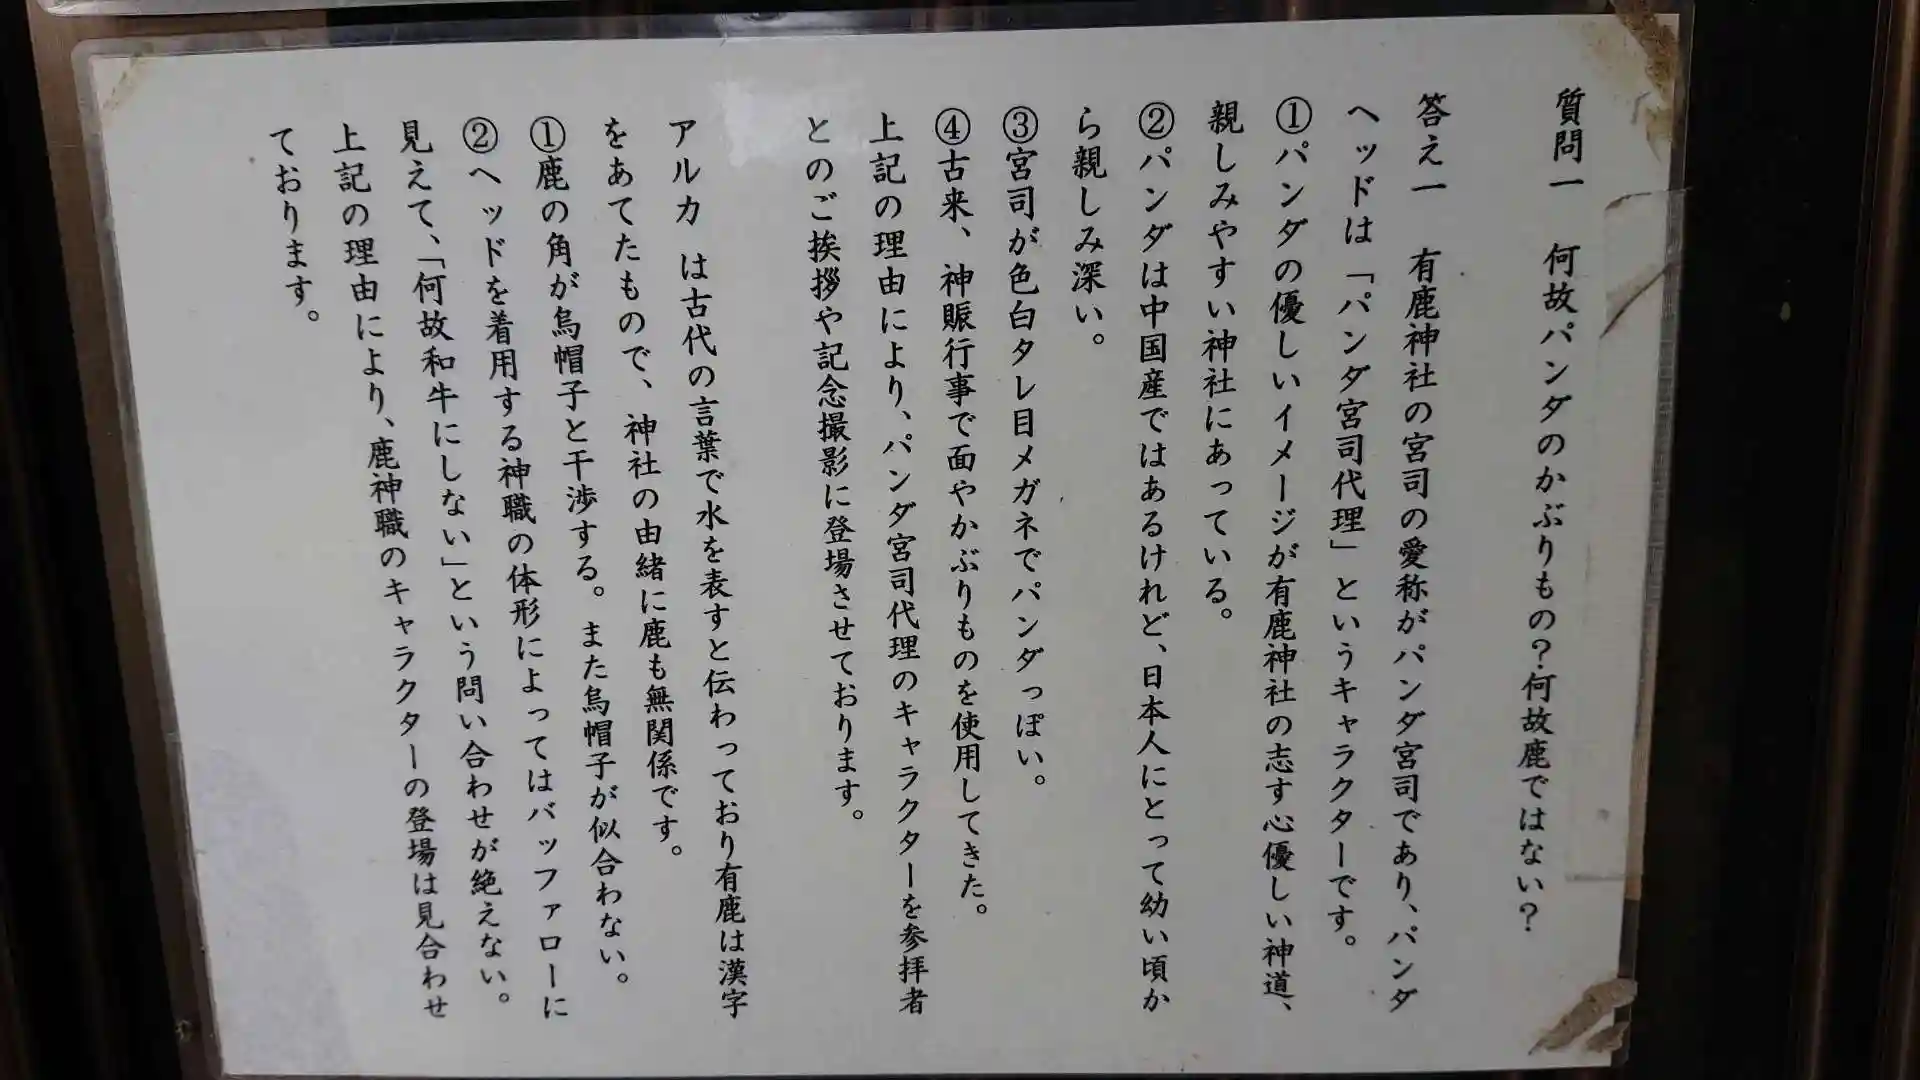 質問一　何故パンダのかぶりもの？何故鹿ではない？
答え一　有鹿神社の宮司の愛称がパンダ宮司であり、パンダ
ヘッドは「パンダ宮司代理」というキャラクターです。
①パンダの優しいイメージが有鹿神社の志す心優しい神道、
親しみやすい神社にあっている。
②パンダは中国産ではあるけれど、日本人にとって幼い頃か
ら親しみ深い。
③宮司が色白タレ目メガネでパンダっぽい。
④古来、神賑行事で面やかぶりものを使用してきた。
上記の理由により、パンダ宮司代理のキャラクターを参拝者
とのご挨拶や記念撮影に登場させております。
アルカ は古代の言葉で水を表すと伝わっており有鹿は漢字
をあてたもので、神社の由緒に鹿も無関係です。
①鹿の角が烏帽子と干渉する。また烏帽子が似合わない。
②ヘッドを着用する神職の体形によってはバッファローに
見えて、「何故和牛にしない」という問い合わせが絶えない。
上記の理由により、鹿神職のキャラクターの登場は見合わせ
ております。